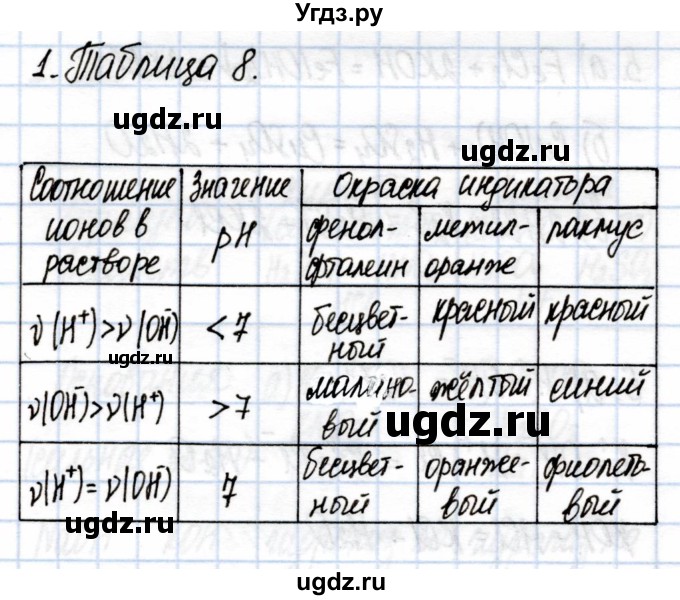 Угдз.ру
1. Таблица 8.
ugdz.ru
ugdz.ru
Соотношение ионов в растворе | Значение pH | Окраска индикатора
фенол-фталеин | метил-оранже | лакмус
ν(H⁺)>ν(OH⁻) | <7 | бесцвет-ный | красный | красный
ugdz.ru
ν(OH⁻)>ν(H⁺) | >7 | малино-вый | жёлтый | синий
ugdz.ru
ν(H⁺)=ν(OH⁻) | 7 | бесцвет-ный | оранже-вый | фиолето-вый
ugdz.ru
ugdz.ru